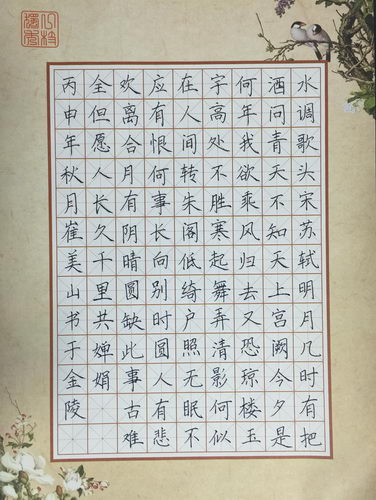 水调歌头宋苏轼明月几时有把
酒问青天不知天上宫阙今夕是
何年我欲乘风归去又恐琼楼玉
宇高处不胜寒起舞弄清影何似
在人间转朱阁低绮户照无眠不
应有恨何事长向别时圆人有悲
欢离合月有阴晴圆缺此事古难
全但愿人长久千里共婵娟
丙申年秋月崔美山书于金陵